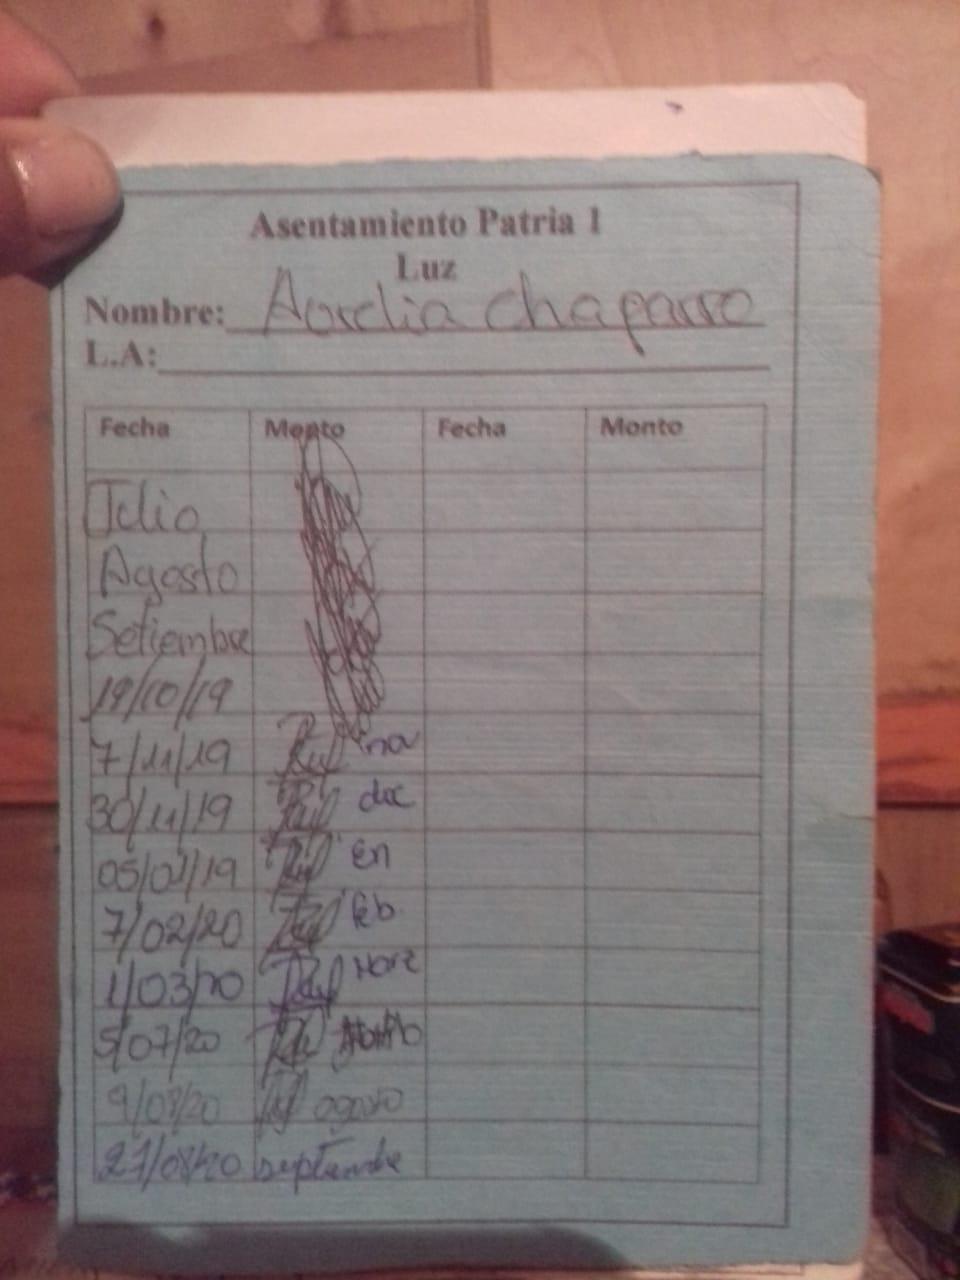 Asentamiento Patria 1
Luz
Nombre: Aurelia Chaparro
L.A:
Fecha Monto Fecha Monto
Julio
Agosto
Setiembre
19/10/19
7/11/19 nov
30/11/19 dic
05/01/19 En
7/02/20 feb
1/03/20 Marz
5/07/20
9/08/20 agosto
27/08/20 septiembre